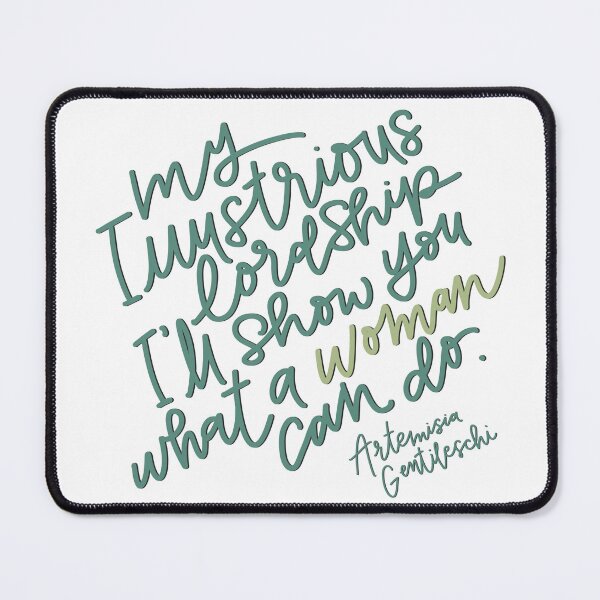 my
Illustrious
lordship
I'll show you
what a woman
can do.
Artemisia
Gentileschi